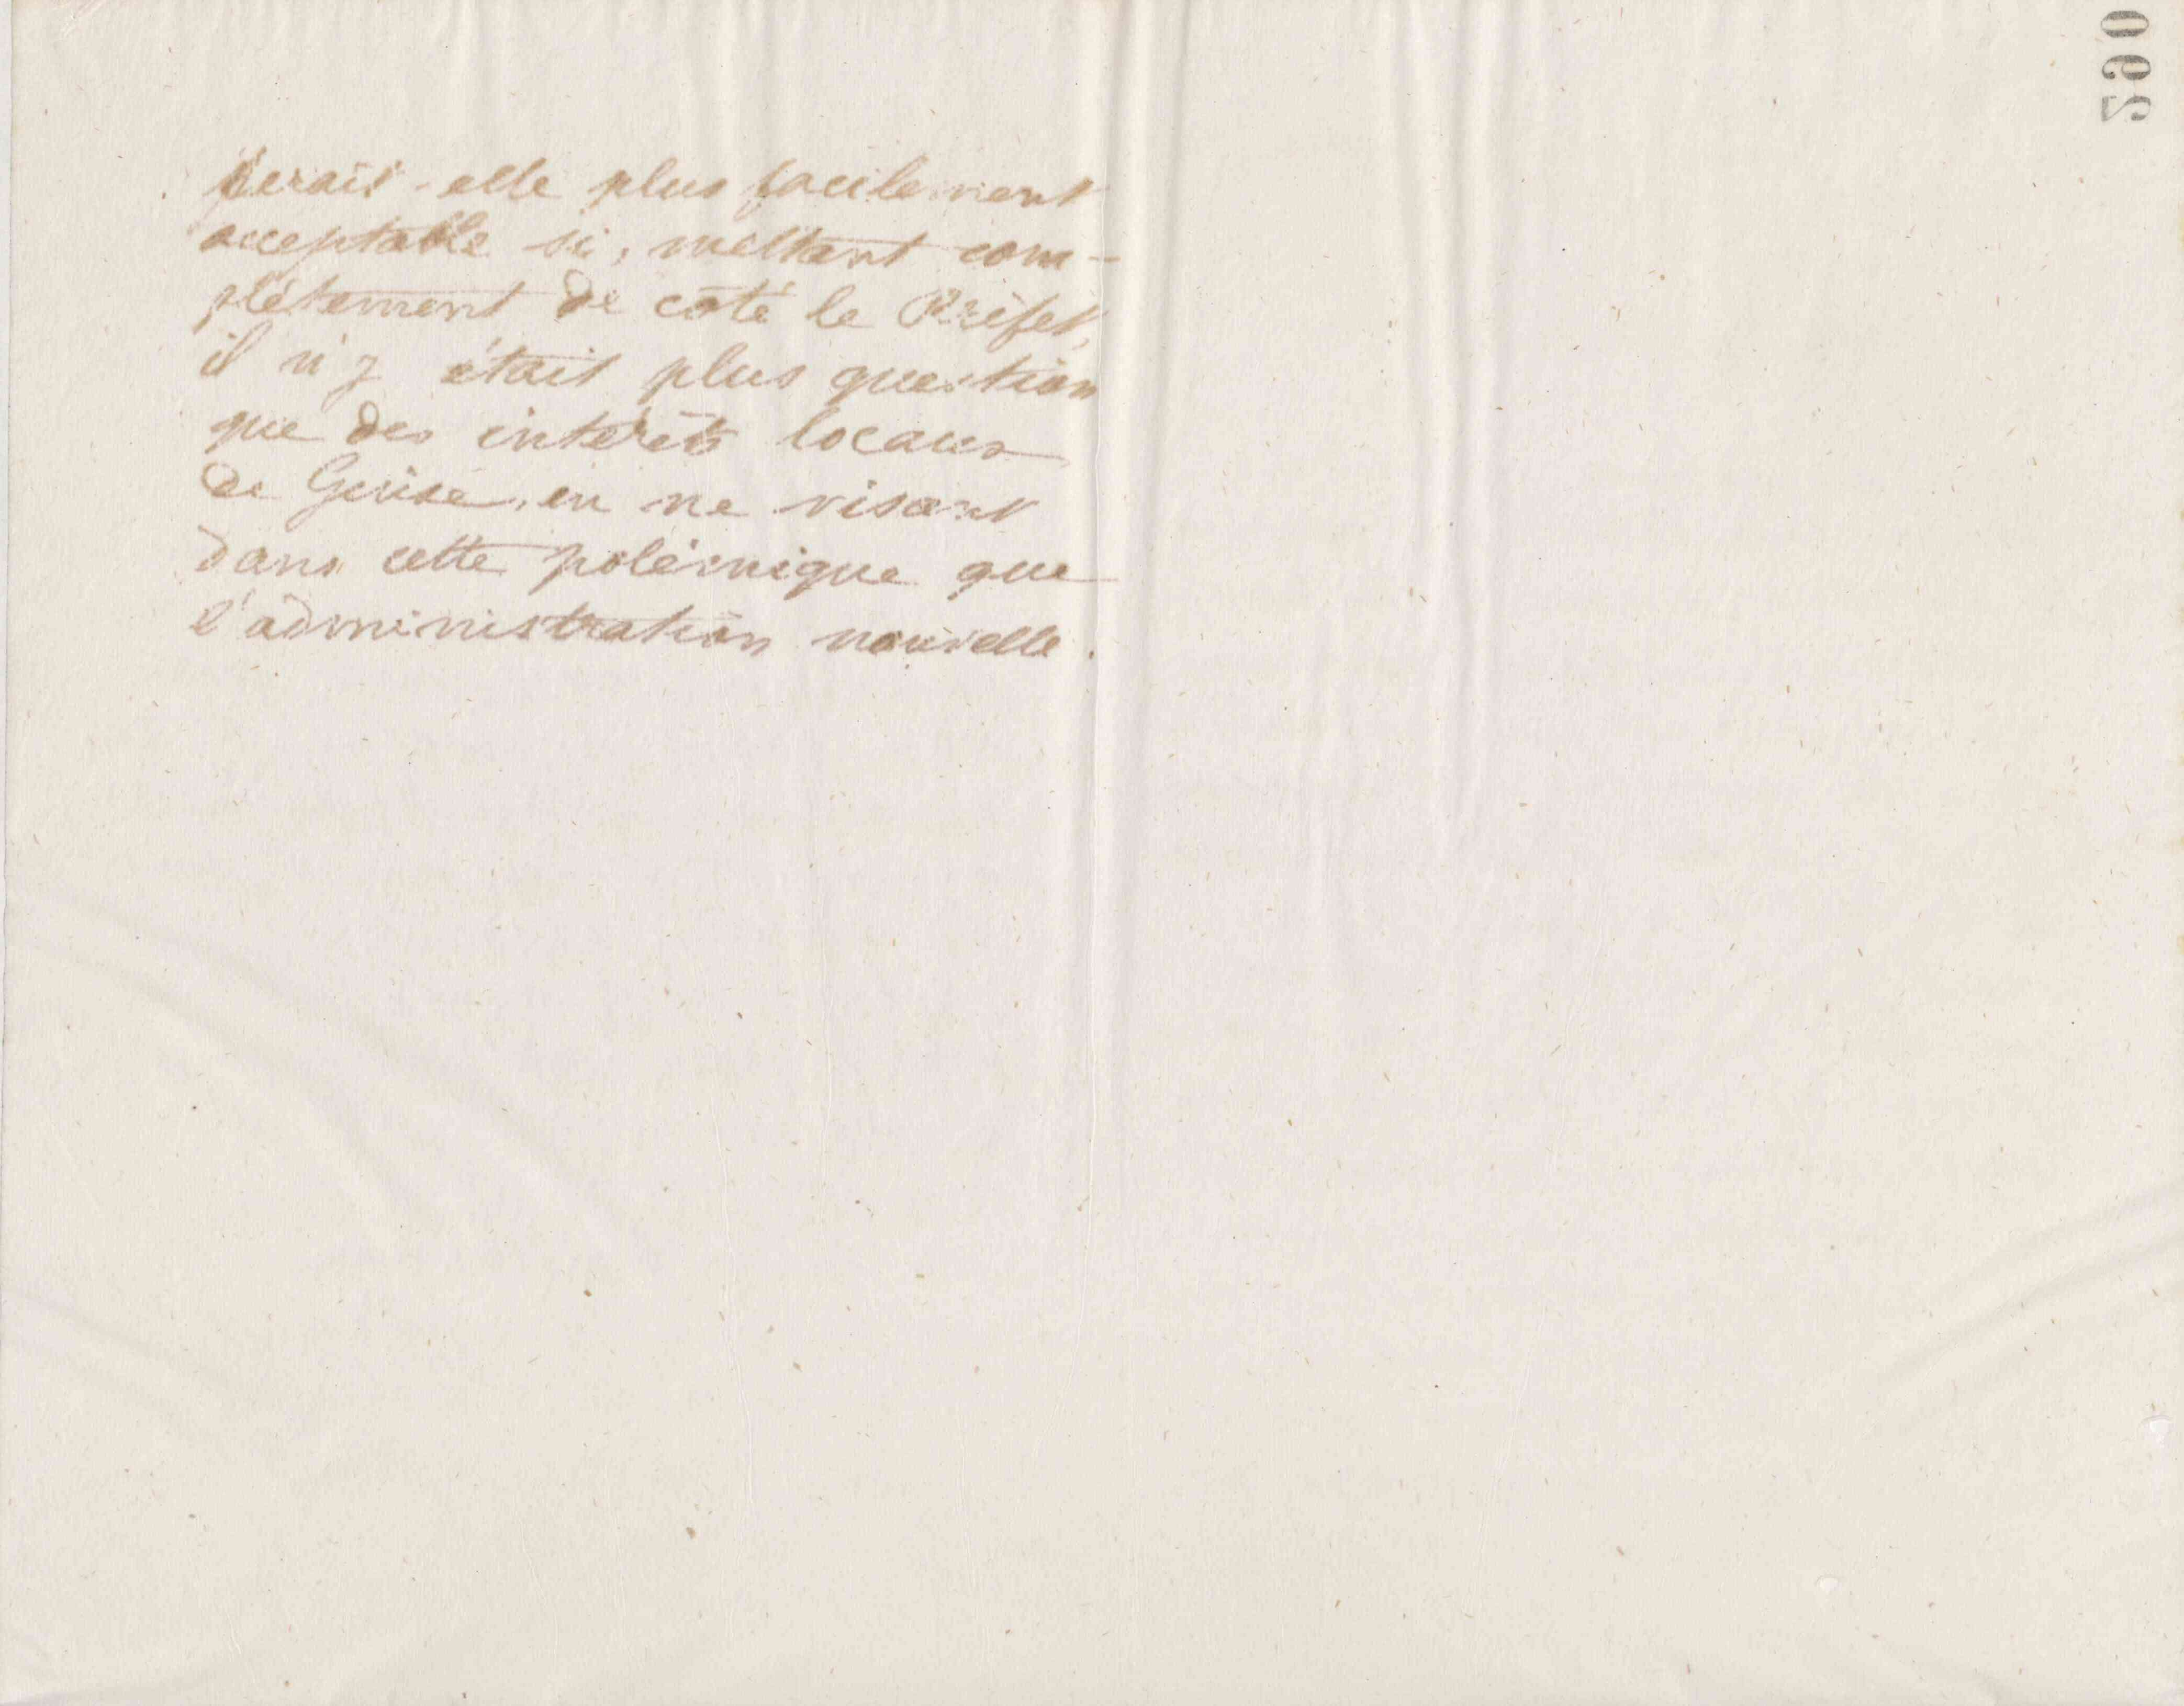 serait-elle plus facilement
acceptable si, mettant com-
plètement de côté le Préfet,
il n'y était plus question
que des intérêts locaux
de Guise, en ne visant
dans cette polémique que
l'administration nouvelle.